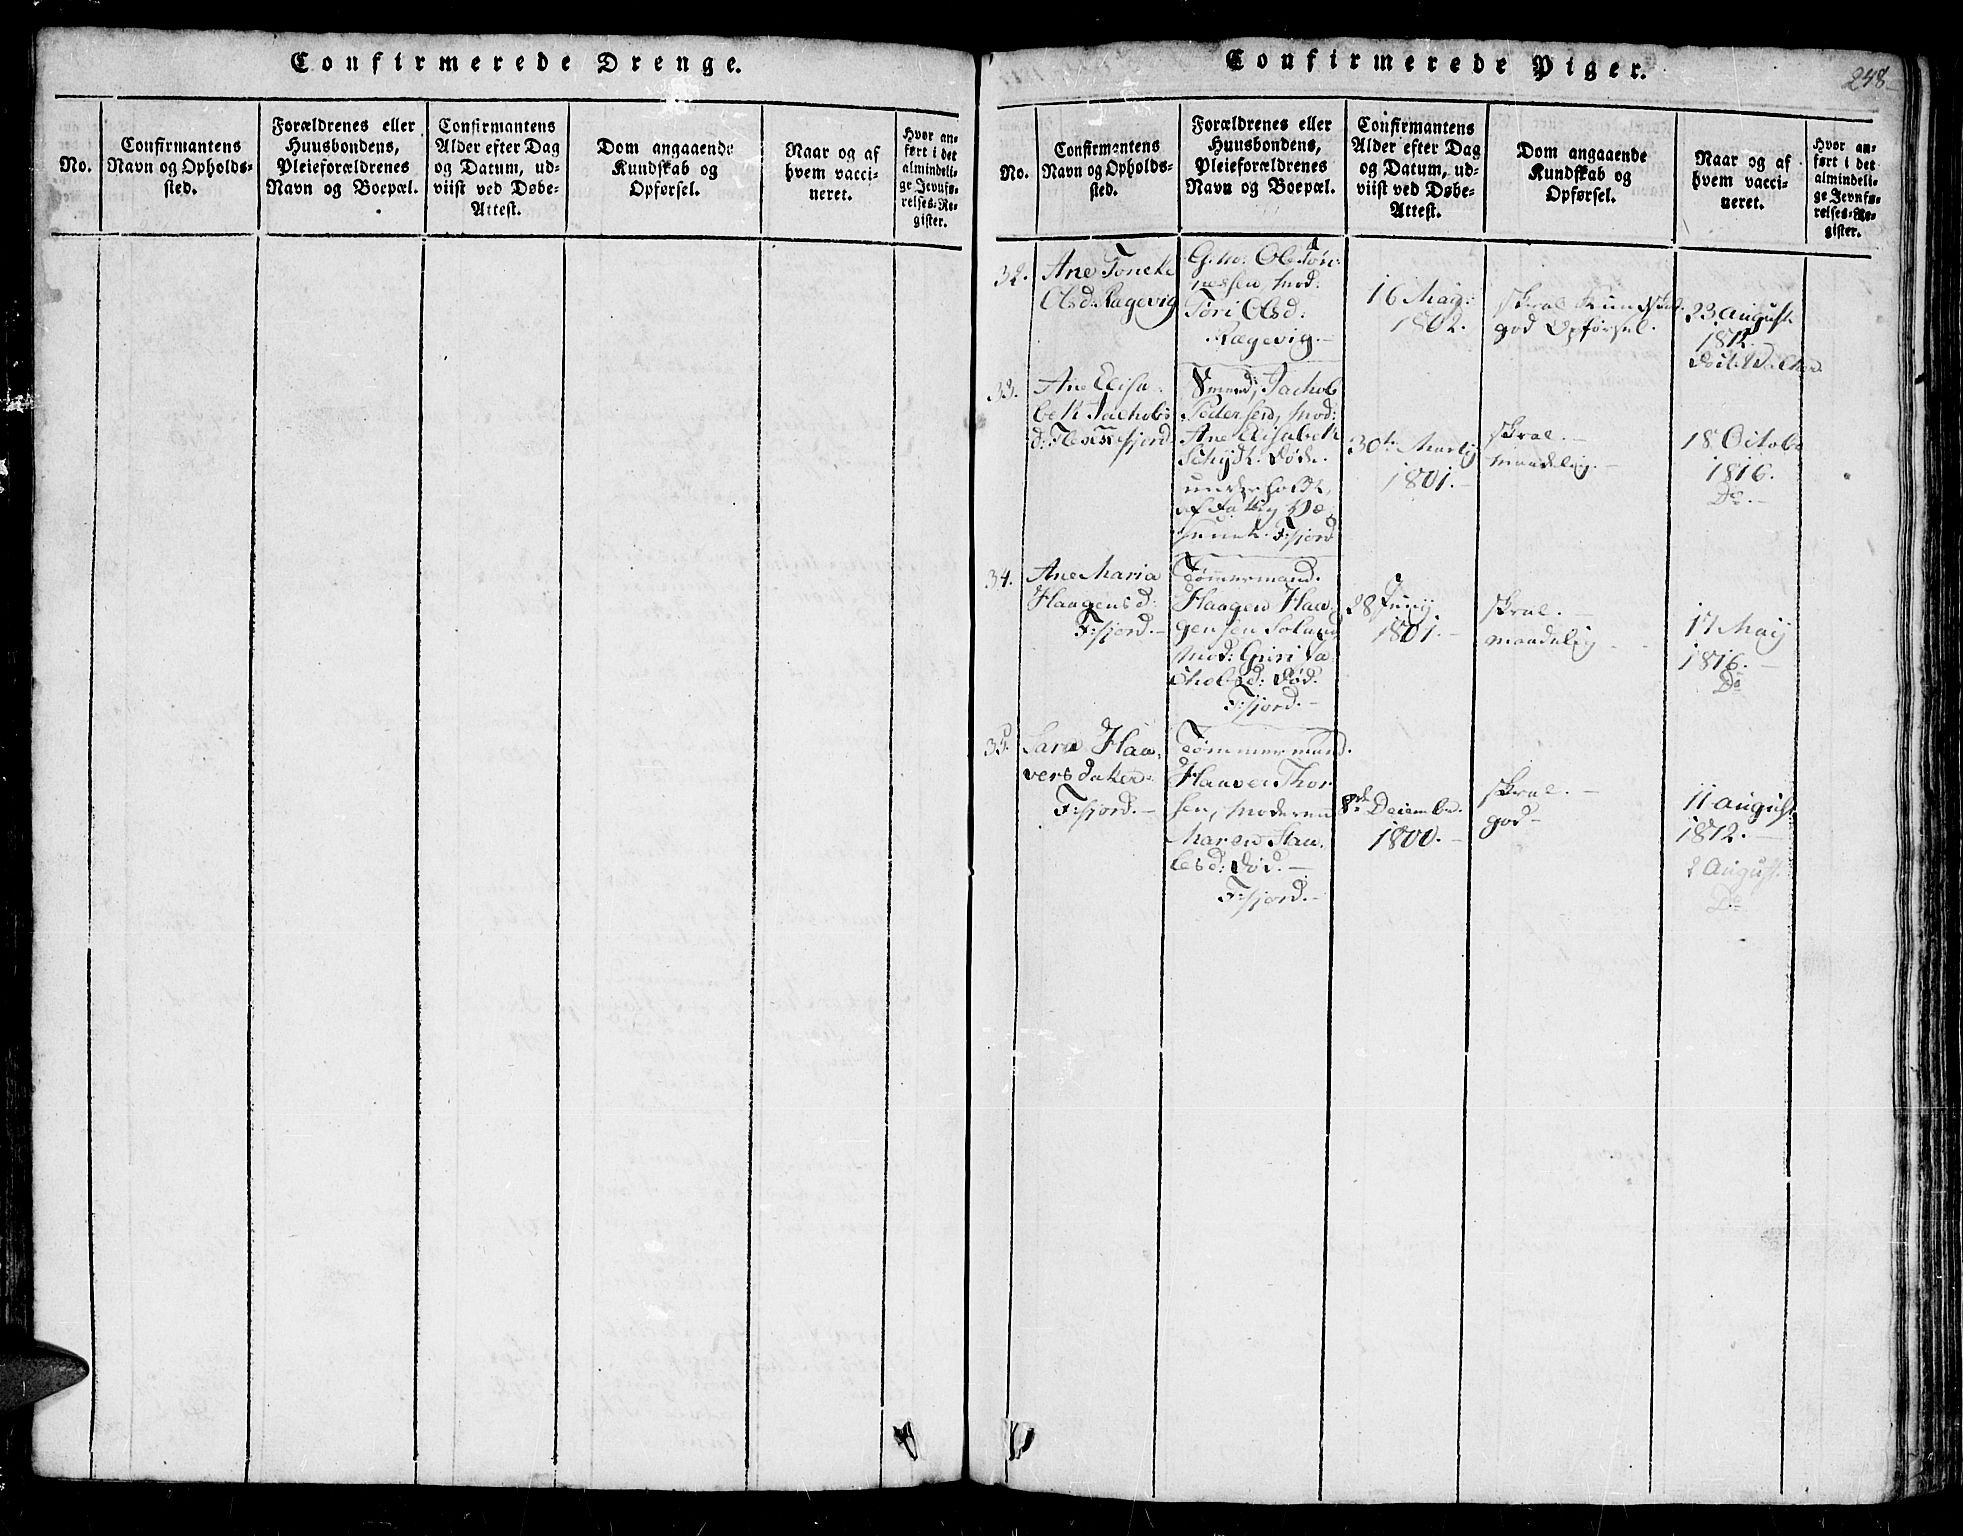 Confirmerede Drenge.
No.
Confirmantens
Navn og Opholds-
sted.
Forældrenes eller
Huusbondens,
Pleieforældrenes
Navn og Boepæl.
Confirmantens
Alder efter Dag
og Datum, ud-
viist ved Døbe-
Attest.
Dom angaaende
Kundskab og
Opførsel.
Naar og af
hvem vacci-
neret.
Hvor an-
ført i det
almindeli-
ge Jevnfø-
relses-Re-
gister.
Confirmerede Piger.
248
No.
Confirmantens
Navn og Opholds-
sted.
Forældrenes eller
Huusbondens,
Pleieforældrenes
Navn og Boepæl.
Confirmantens
Alder efter Dag
og Datum, ud-
viist ved Døbe-
Attest.
Dom angaaende
Kundskab og
Opførsel.
Naar og af
hvem vacci-
neret.
Hvor an-
ført i det
almindeli-
ge Jevnfø-
relses-Re-
gister.
32.
Ane Toneke
Olsd: Ragevig
Ole Tøn-
nessen, Mod:
Tori Olsd:
Ragevig.
16 Maij:
1802.
skral Kundskab
god Opførsel.
23 August
1812.
33.
Ane Elisa-
beth Jachobs
d: Flekkefjord
Jachob
Pedersen, Mod:
Ane Elisabeth
død.
F:fjord
30te Martij
1801.
skral.
maadelig.
18 Octobr
1816.
Do.
34.
Ane Maria
Haagensd:
F:fjord.
Tømmermand.
Haagen Haa-
gensen
Mod: Guri Ja-
chobsd: død.
F:fjord.
28 Junij
1801.
skral.
maadelig
17 Maij
1816.
Do
35.
Sara Haa-
versdatter
F:fjord.
Tømmermand.
Haaver Thor-
sen, Moderen
Maren
død.
F:fjord.
8de Decembr.
1800.
skral.
god
11 August
1812.
2 August
Do